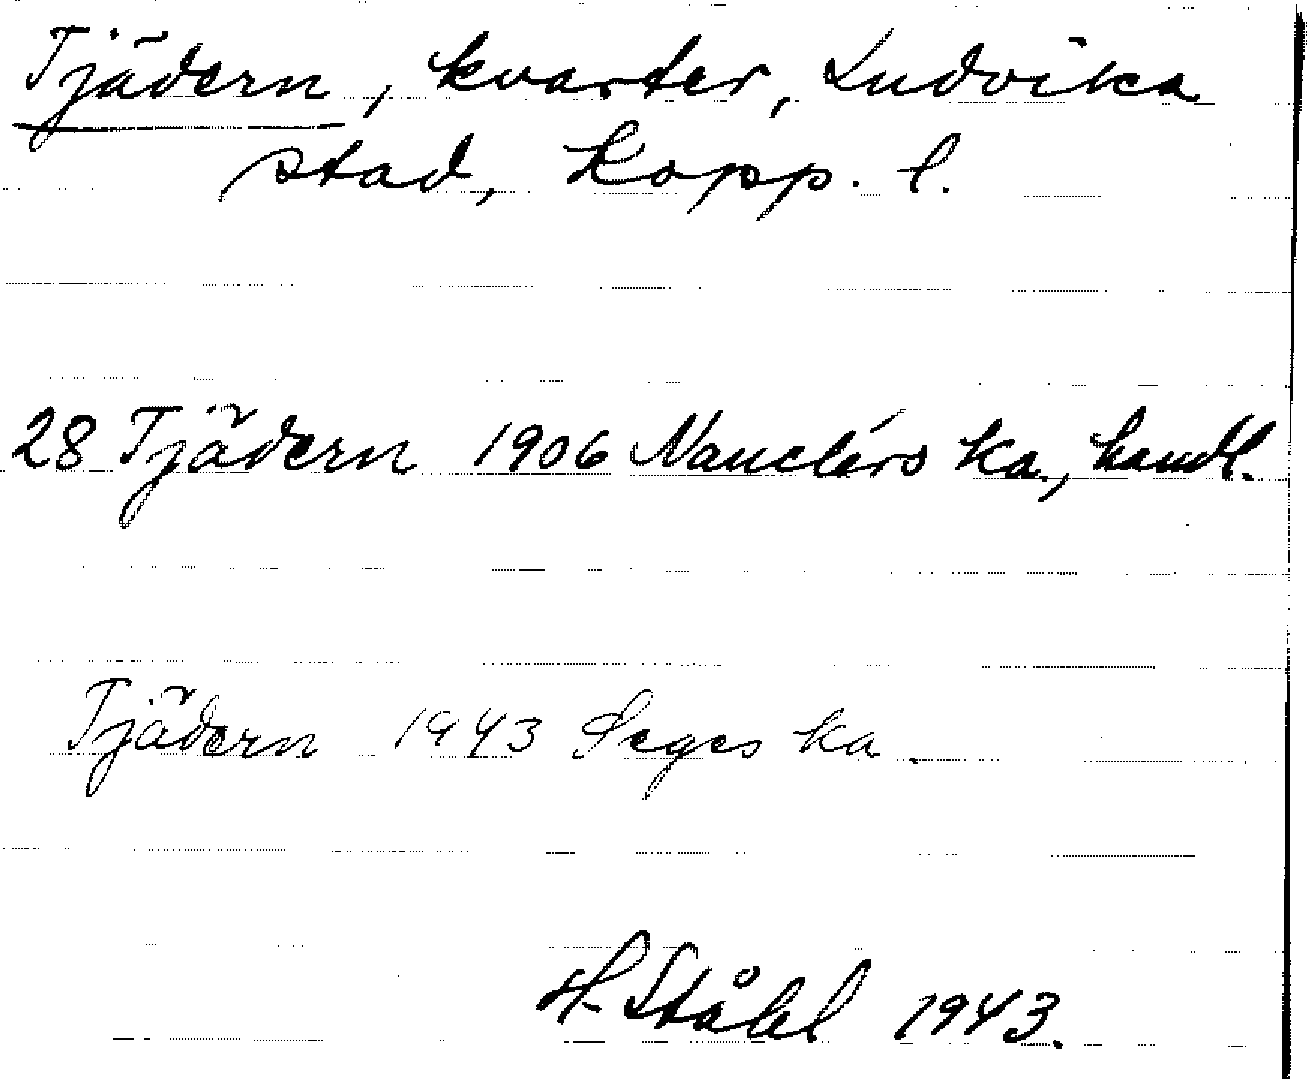 Tjädern, kvarter, Ludvika
stad, Kopp. l.
28 Tjädern 1906 Nauclérs ka., handl.
Tjädern 1943 Seges ka.
H. Ståhl 1943.